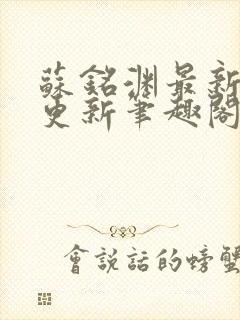 蘇銘淵最新
更新筆趣閣
會說話的螃蟹